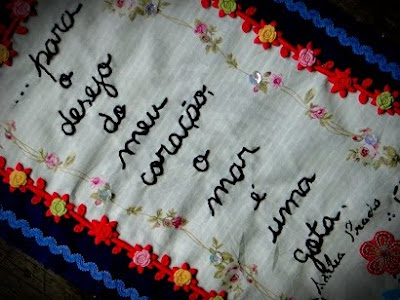 .... para
o
desejo
do
meu
coração,
o
mar
é
uma
gota.
Adélia Prado